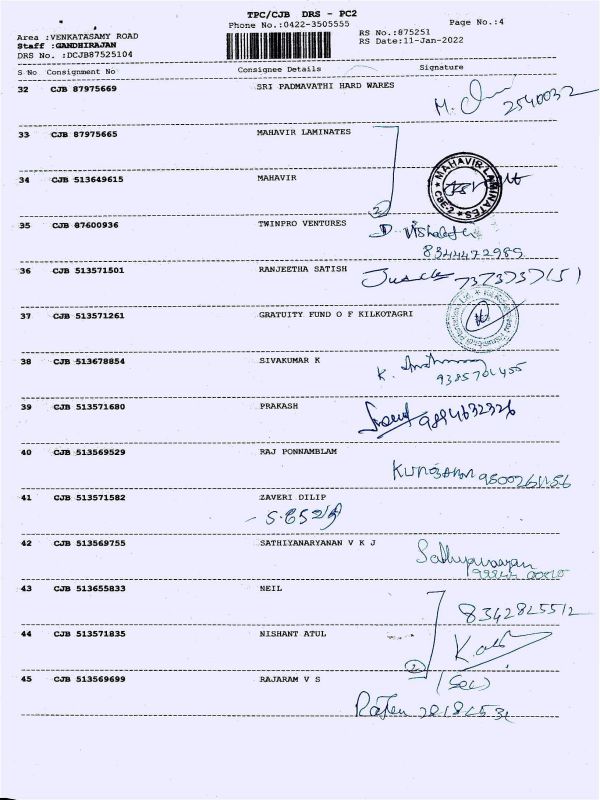 TPC/CJB DRS - PC2
Phone No.:0422-3505555
Page No.:4
Area :VENKATASAMY ROAD
Staff :GANDHIRAJAN
DRS No. :DCJB87525104
RS No.:875251
RS Date:11-Jan-2022
S No Consignment No Consignee Details Signature
32 CJB 87975669 SRI PADMAVATHI HARD WARES
2540032
33 CJB 87975665 MAHAVIR LAMINATES
34 CJB 513649615 MAHAVIR
MAHAVIR LAMINATES CBE-2
2
35 CJB 87600936 TWINPRO VENTURES
8344472989
36 CJB 513571501 RANJEETHA SATISH
7373737151
37 CJB 513571261 GRATUITY FUND O F KILKOTAGRI
38 CJB 513678854 SIVAKUMAR K
K.
9385701455
39 CJB 513571680 PRAKASH
9894632326
40 CJB 513569529 RAJ PONNAMBLAM
41 CJB 513571582 ZAVERI DILIP
42 CJB 513569755 SATHIYANARYANAN V K J
43 CJB 513655833 NEIL
44 CJB 513571835 NISHANT ATUL
2
45 CJB 513569699 RAJARAM V S
(Sec)